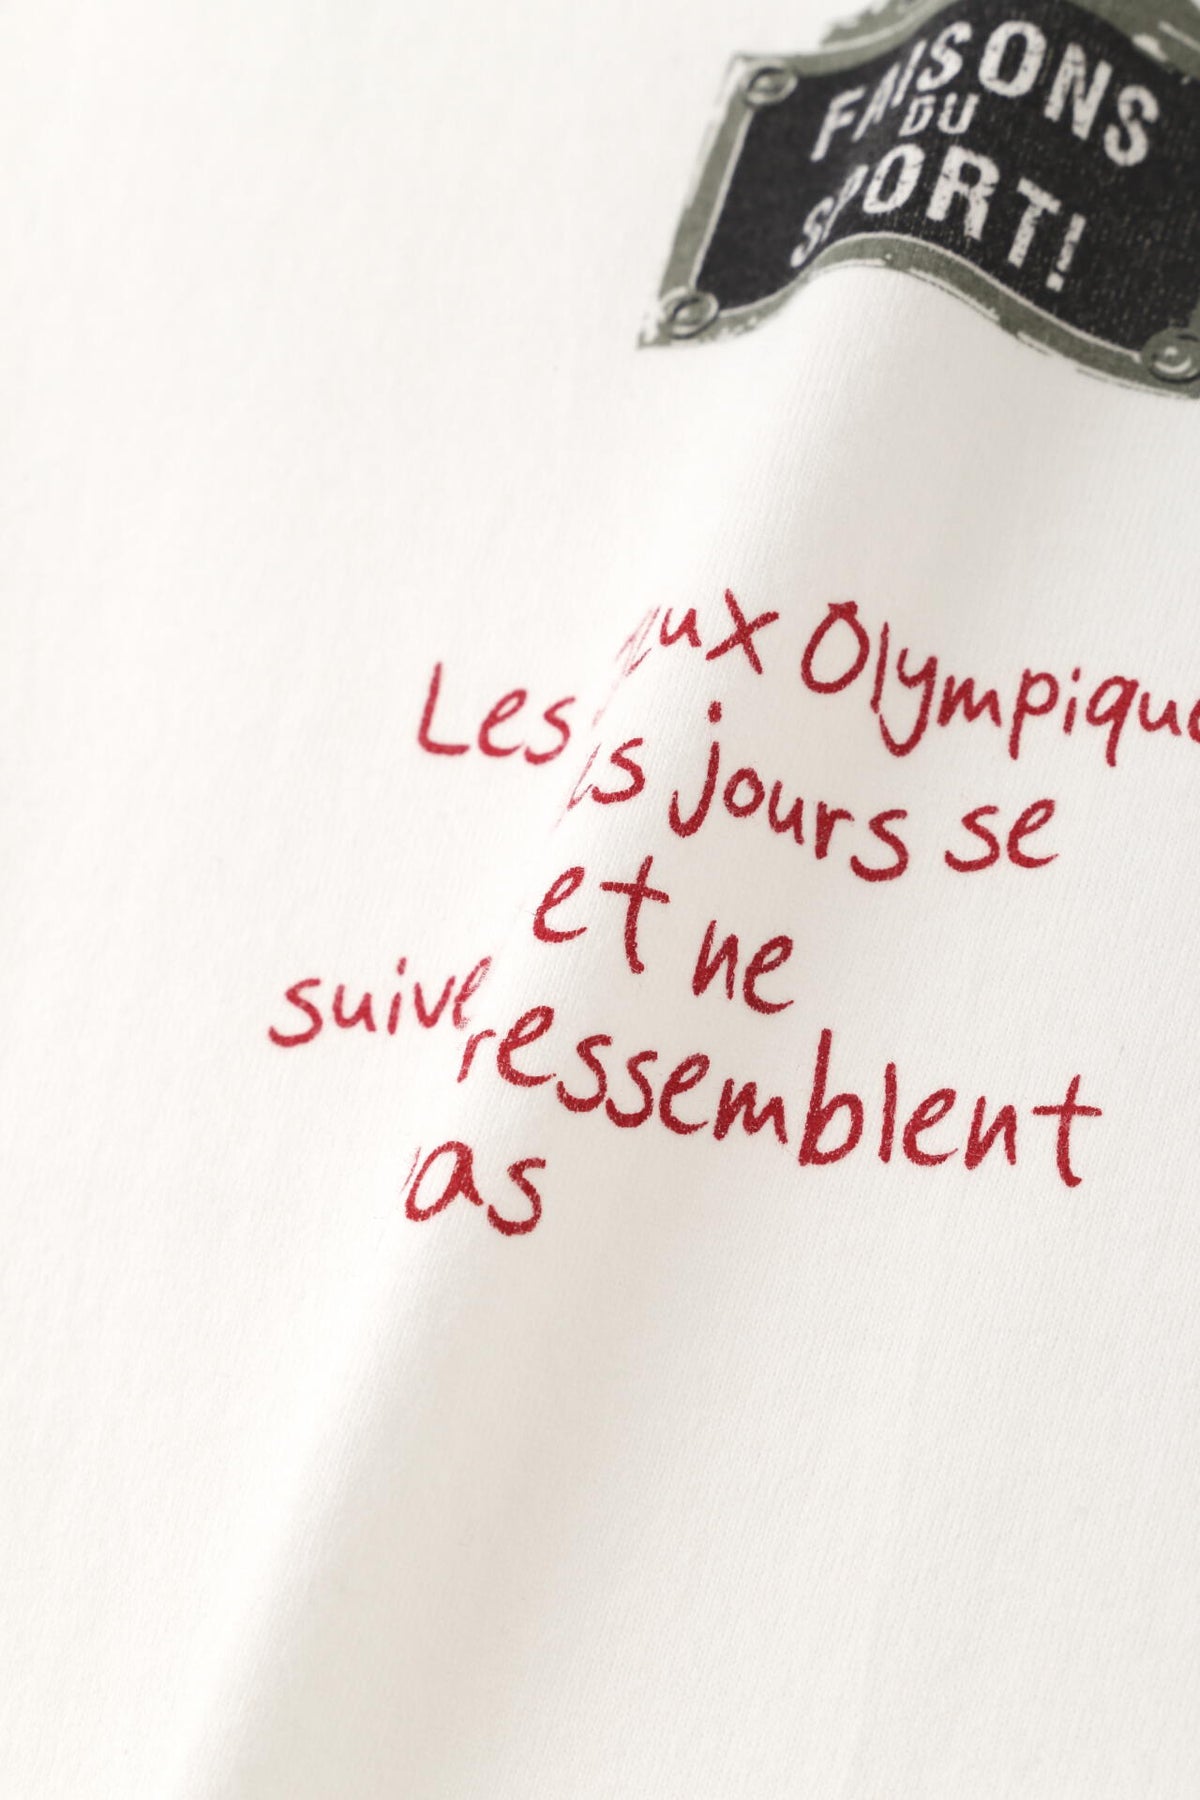 FAISONS
DU
SPORT!
Les ux Olympique
s jours se
suive et ne
ressemblent
as